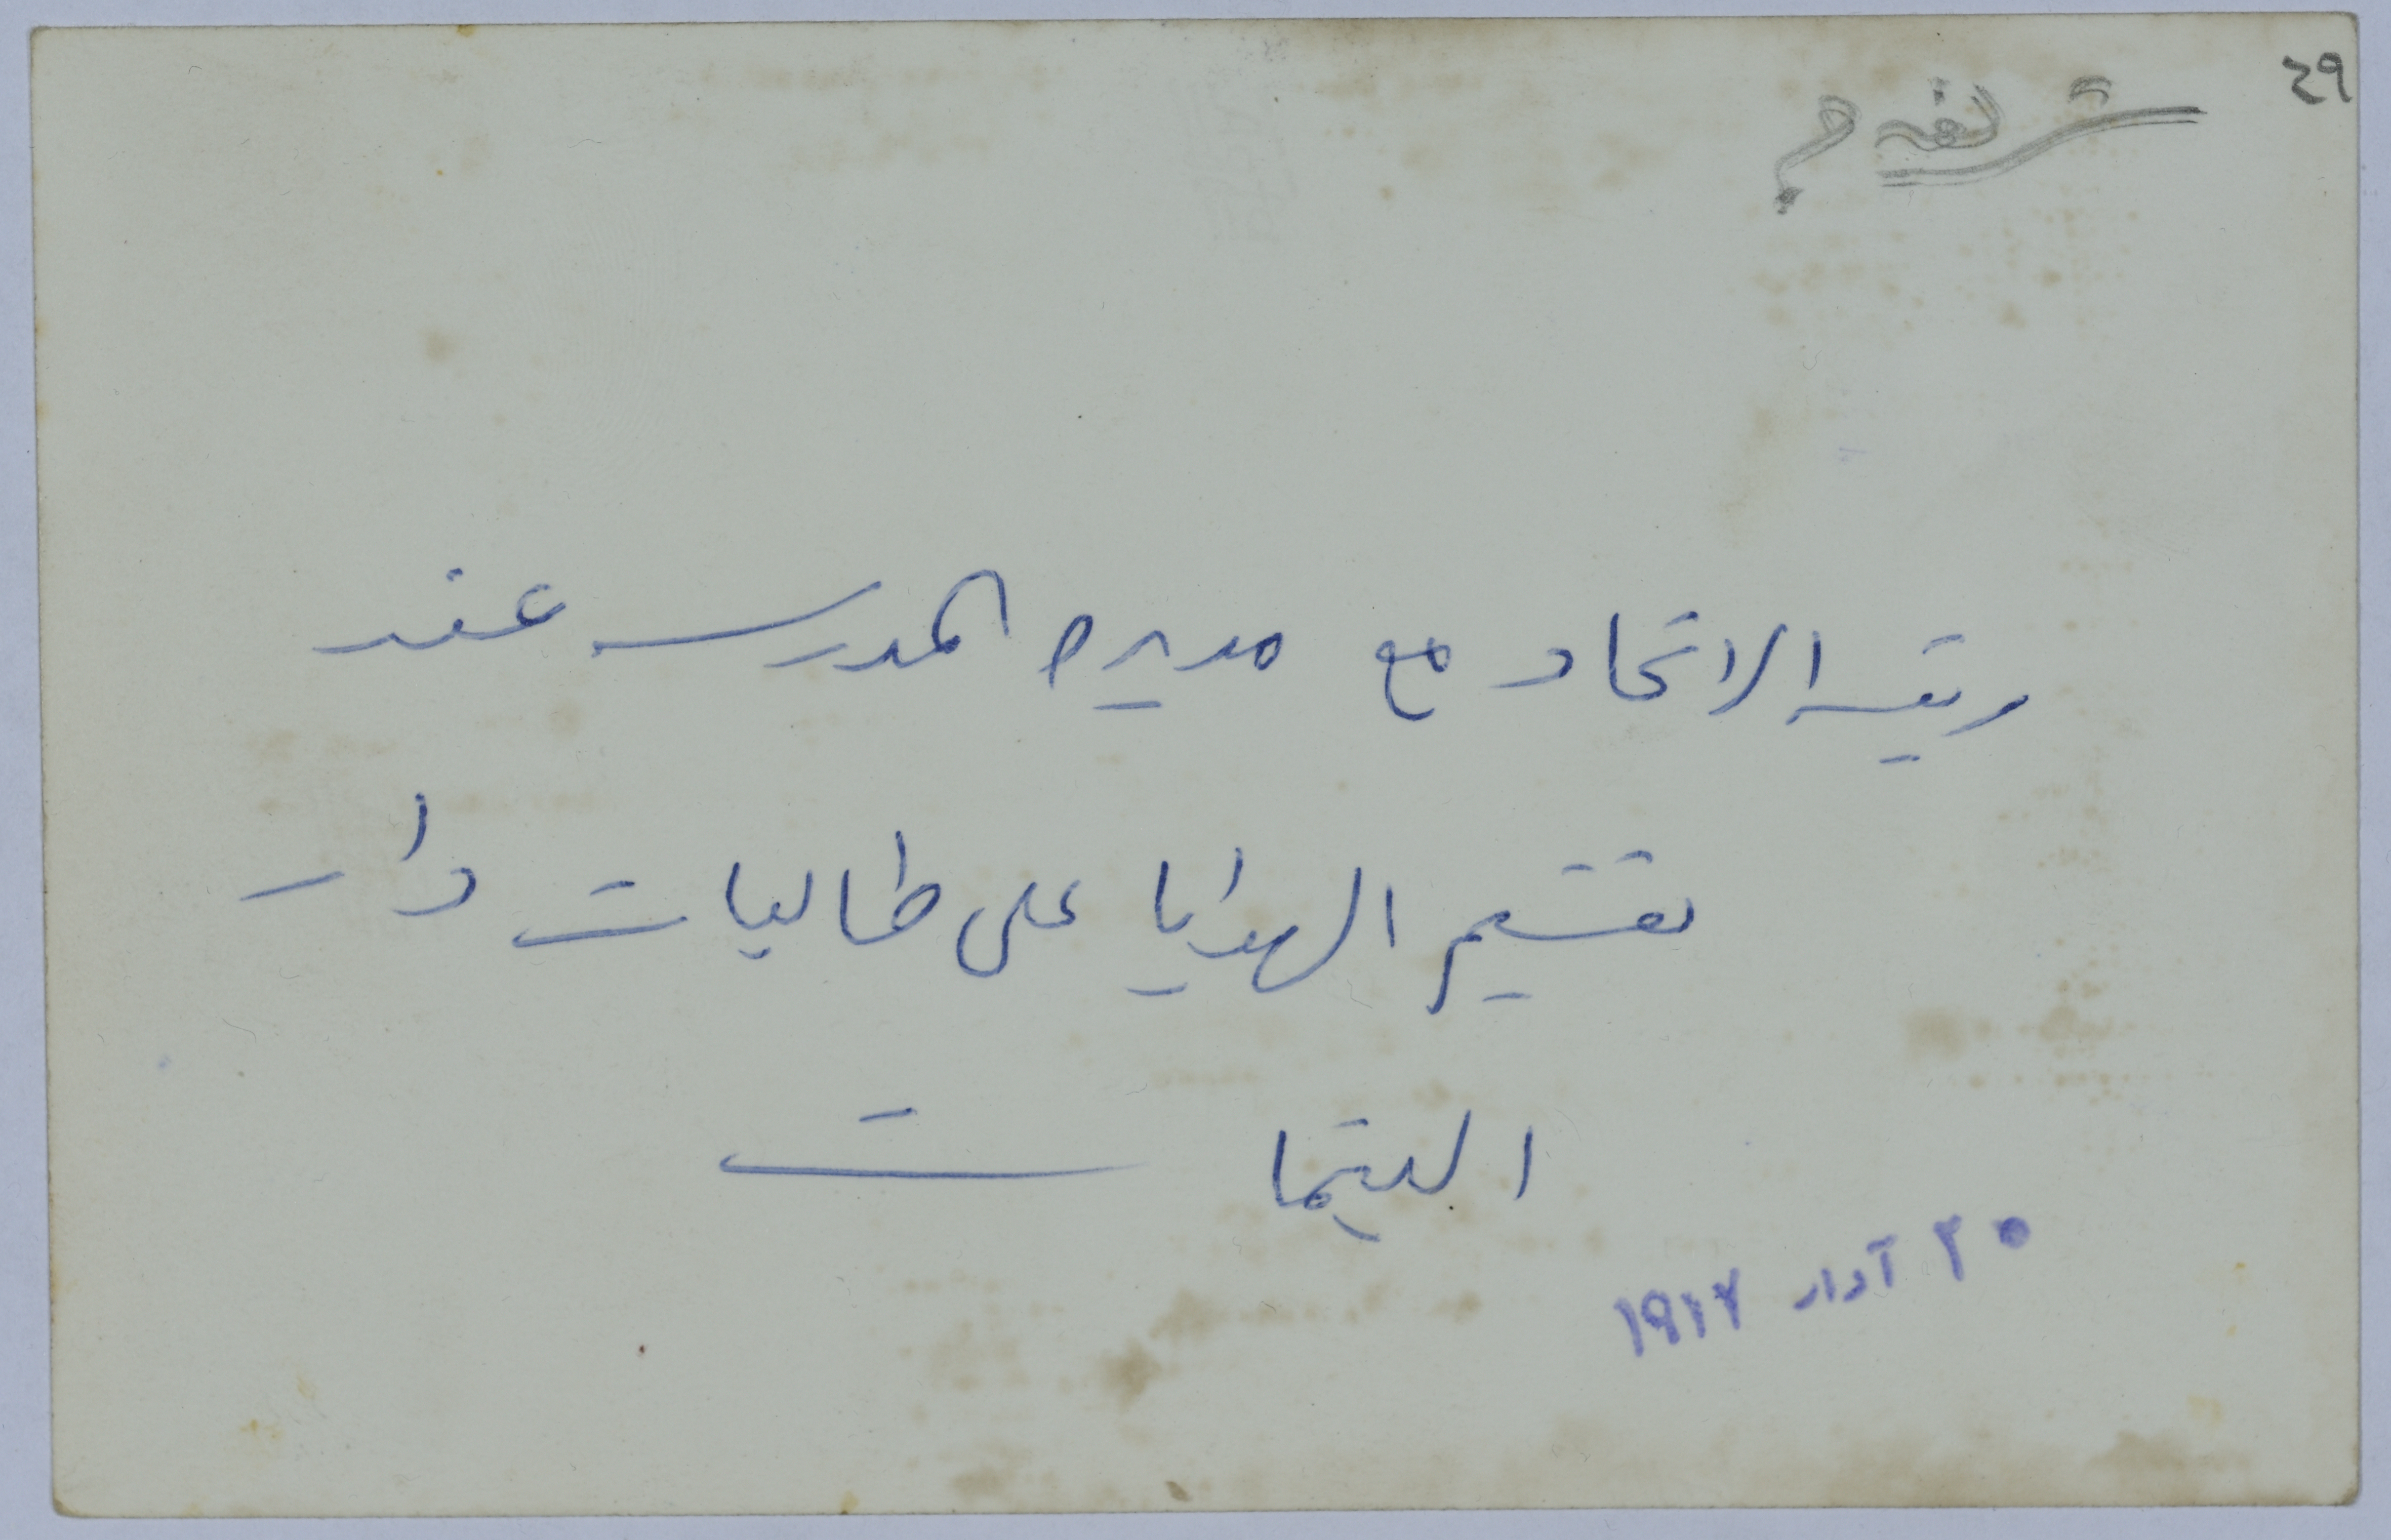 ٢٩
رئيسة الاتحاد مع مديرة المدرسة عند
تقسيم الهدايا على طالبات دار
اليتيمات
٢٠ آذار